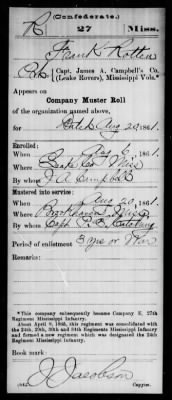 (Confederate.)
R 27 Miss.
Frank Rotten
Capt. James A. Campbell's Co.
(Leake Rovers), Mississippi Vols.*
Appears on
Company Muster Roll
of the organization named above,
for Dated Aug 20, 1861.
Enrolled:
When Aug 6, 1861.
Where Leake Co Miss
By whom J. A. Campbell
Mustered into service:
When Aug 20, 1861.
Where Brookhaven Miss
By whom Capt
Period of enlistment 3 yrs or War
Remarks:
*This company subsequently became Company E, 27th
Regiment Mississippi Infantry.
About April 9, 1865, this regiment was consolidated with
the 24th, 29th, 30th and 34th Regiments Mississippi Infantry
and formed a new regiment which was designated the 24th
Regiment Mississippi Infantry.
Book mark:
J. Jacobson
Copyist.